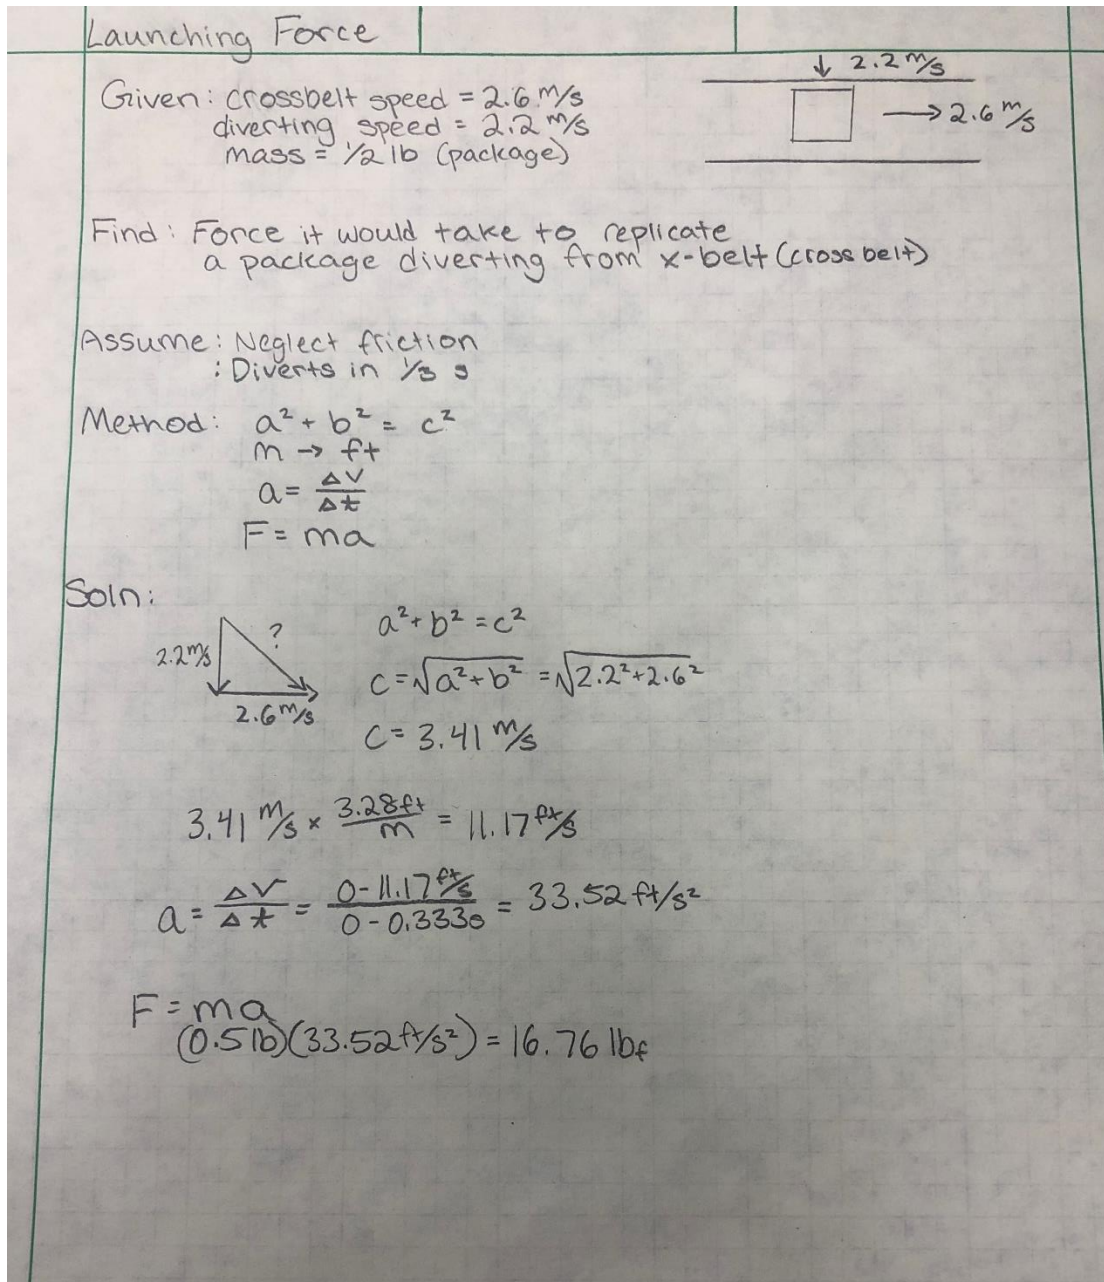 Launching Force
↓ 2.2 m/s
→ 2.6 m/s
Given: crossbelt speed = 2.6 m/s
diverting speed = 2.2 m/s
mass = 1/2 lb (package)
Find: Force it would take to replicate
a package diverting from x-belt (cross belt)
Assume: Neglect friction
: Diverts in 1/3 s
Method: a² + b² = c²
m → ft
a = ΔV/Δt
F = ma
Soln:
2.2 m/s
?
2.6 m/s
a² + b² = c²
c = √a² + b² = √2.2² + 2.6²
c = 3.41 m/s
3.41 m/s × 3.28ft/m = 11.17 ft/s
a = ΔV/Δt = 0 - 11.17 ft/s / 0 - 0.333s = 33.52 ft/s²
F = ma
(0.5 lb)(33.52 ft/s²) = 16.76 lbf